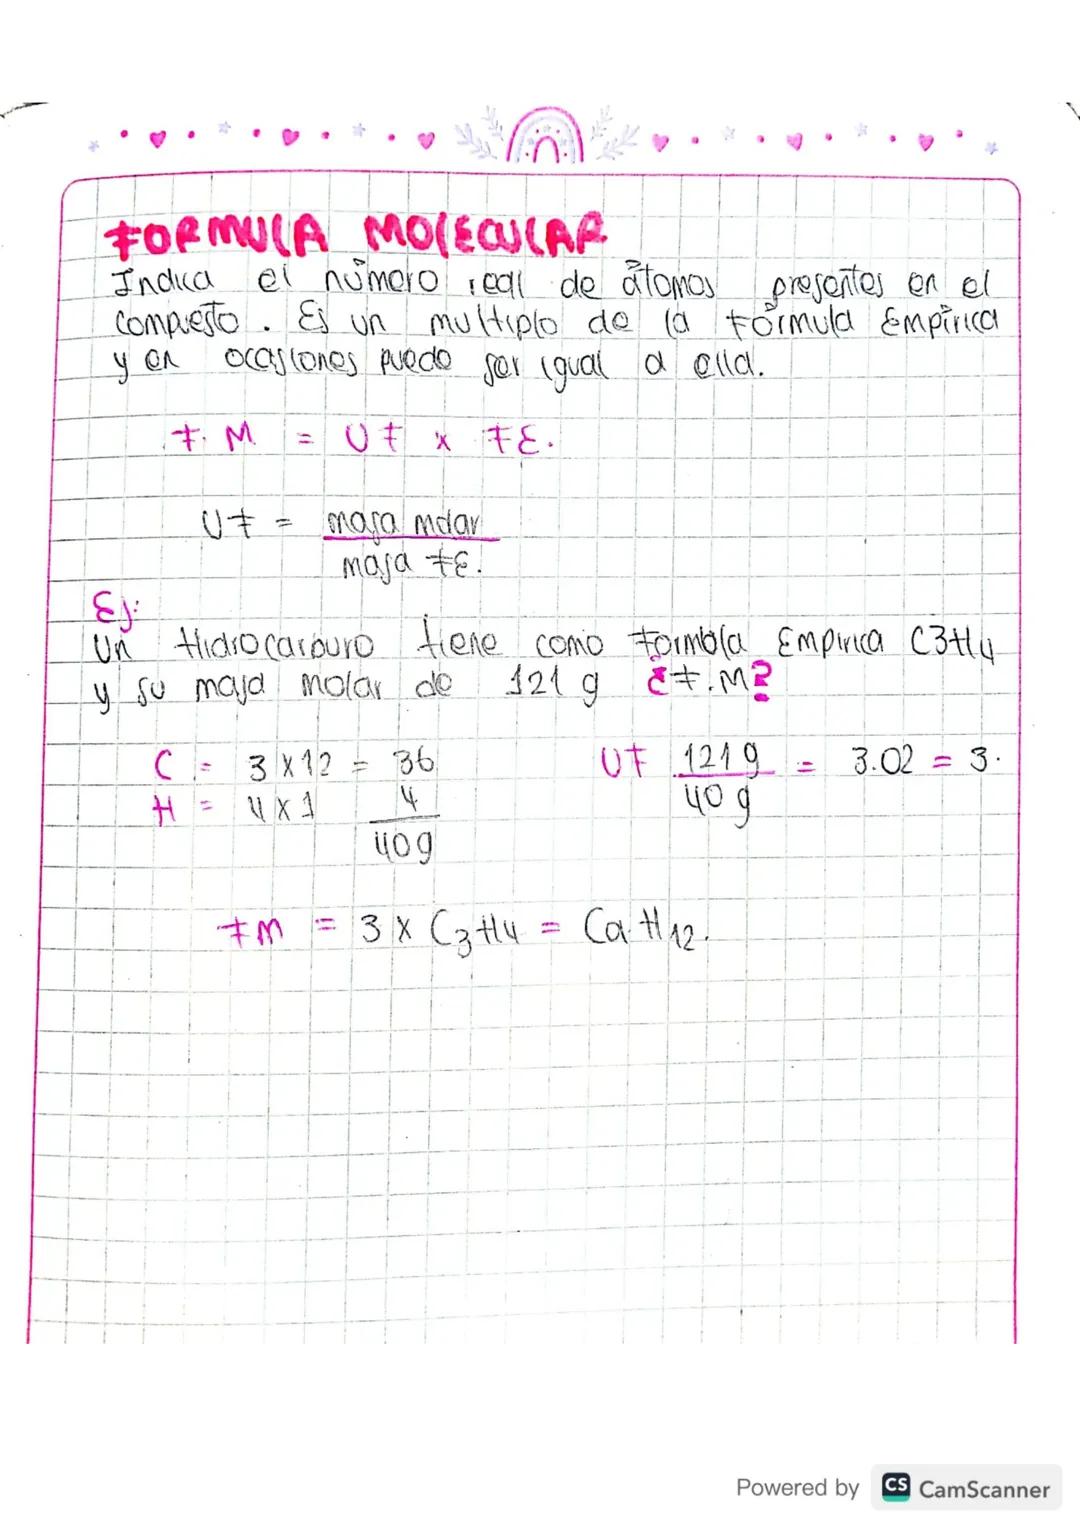 FORMULA MOLECULAR
Indica el número real de átomos presentes en el
compuesto. Es un multiplo de la fórmula Empírica
y en ocasiones puede ser igual a ella.
F. M = UF x FE.
UF = masa molar
masa FE.
Ej:
Un Hidrocarburo tiene como formula Empirica C3H4
y su masa molar de 121 g ¿F.M?
C = 3 x 12 = 36 UF 121 g = 3.02 = 3.
H = 4 x 1 4 40 g
40g
FM = 3 x C3H4 = C9H12.
Powered by CS CamScanner